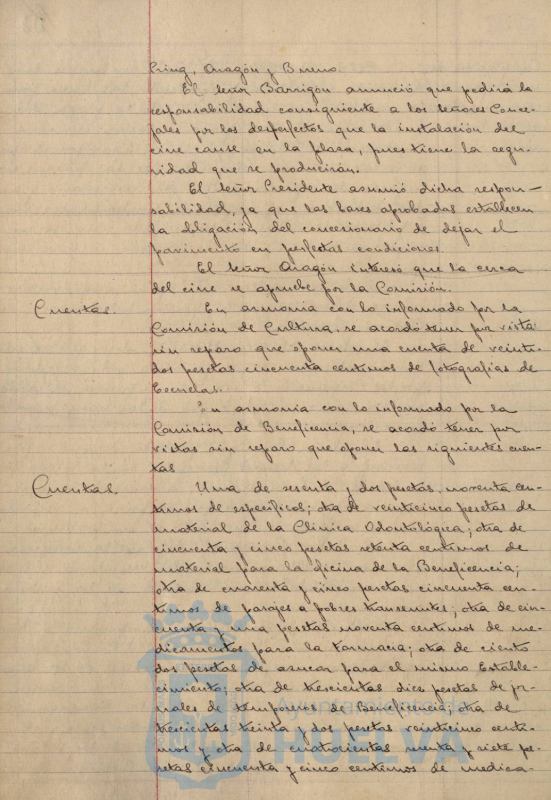 Pring, Aragón y Bueno.
El Señor Barrigón anunció que pedirá la
responsabilidad consiguiente a los Señores Conce-
jales por los desperfectos que la instalación del
cine cause en la plaza, pues tiene la segu-
ridad que se producirán.
El Señor Presidente asumió dicha respon-
sabilidad, ya que las bases aprobadas establecen
la obligación del concesionario de dejar el
pavimento en perfectas condiciones.
El Señor Aragón interesó que la cerca
del cine se apruebe por la Comisión.
Cuentas.
En armonia con lo informado por la
Comisión de Cultura, se acordó tener por vista
sin reparo que oponer una cuenta de veinti-
dos pesetas cincuenta centimos de fotografias de
Escuelas.
En armonia con lo informado por la
Comisión de Beneficencia, se acordó tener por
vistas sin reparo que oponer las siguientes cuen-
tas
Cuentas.
Una de sesenta y dos pesetas, noventa cen-
timos de especificos; otra de veinticinco pesetas de
material de la Clinica Odontológica; otra de
cincuenta y cinco pesetas setenta centimos de
material para la oficina de la Beneficencia;
otra de cuarenta y cinco pesetas cincuenta cen-
timos de pasajes a pobres transeuntes; otra de cin-
cuenta y una pesetas noventa centimos de me-
dicamentos para la Farmacia; otra de ciento
dos pesetas de azucar para el mismo Estable-
cimiento; otra de trescientas diez pesetas de jor-
nales de temporeros de Beneficencia; otra de
trescientas treinta y dos pesetas veinticinco centi-
mos y otra de cuatrocientas y siete pe-
setas cincuenta y cinco centimos de medica-
Ayuntamiento de
HUELVA